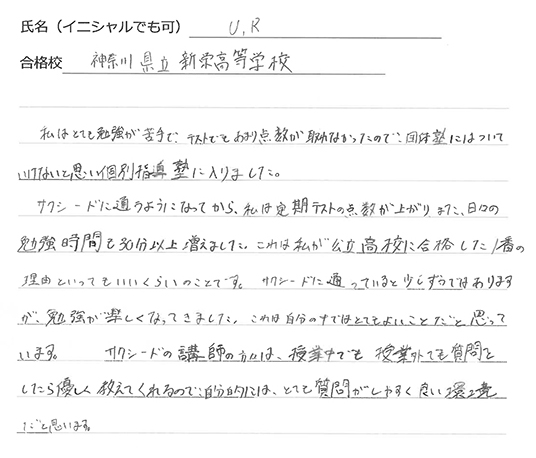 氏名（イニシャルでも可） U,R
合格校 神奈川県立 新栄高等学校
私はとても勉強が苦手で、テストでもあまり点数が取れなかったので、団体塾にはついて
いけないと思い個別指導塾に入りました。
サクシードに通うようになってから、私は定期テストの点数が上がり また、日々の
勉強時間も30分以上増えました。これは私が公立高校に合格した1番の
理由といってもいいくらいのことです。 サクシードに通っていると少しずつではあります
が、勉強が楽しくなってきました。これは自分の中ではとてもよいことだと思って
います。 サクシードの講師の方々は、授業中でも 授業外でも質問を
したら優しく教えてくれるので、自分的には、とても質問がしやすく良い環境
だと思います。